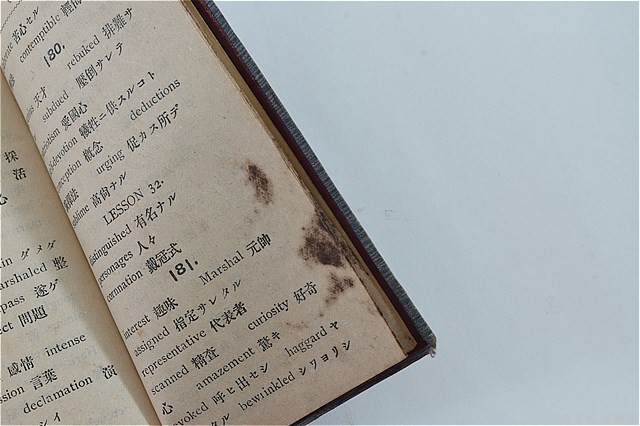 苦心セル contemptible 輕
180.
天才 rebuked 排難サ
subdued 壓倒サレテ
愛國心
devotion 犧牲ニ供スルコト
概念 deductions
urging 促カス所デ
高尙ナル
LESSON 32.
distinguished 有名ナル
personages 人々
coronation 戴冠式
181.
interest 趣味 Marshal 元帥
assigned 指定サレタル
representative 代表者
scanned 精査 curiosity 好奇
心 amazement 驚キ haggard ヤ
呼ヒ出セシ bewrinkled シワヨリシ
タル
採
活
心
グメダ
marshaled 整
遂ゲ
問題
感情 intense
言葉
declamation 演
シイ